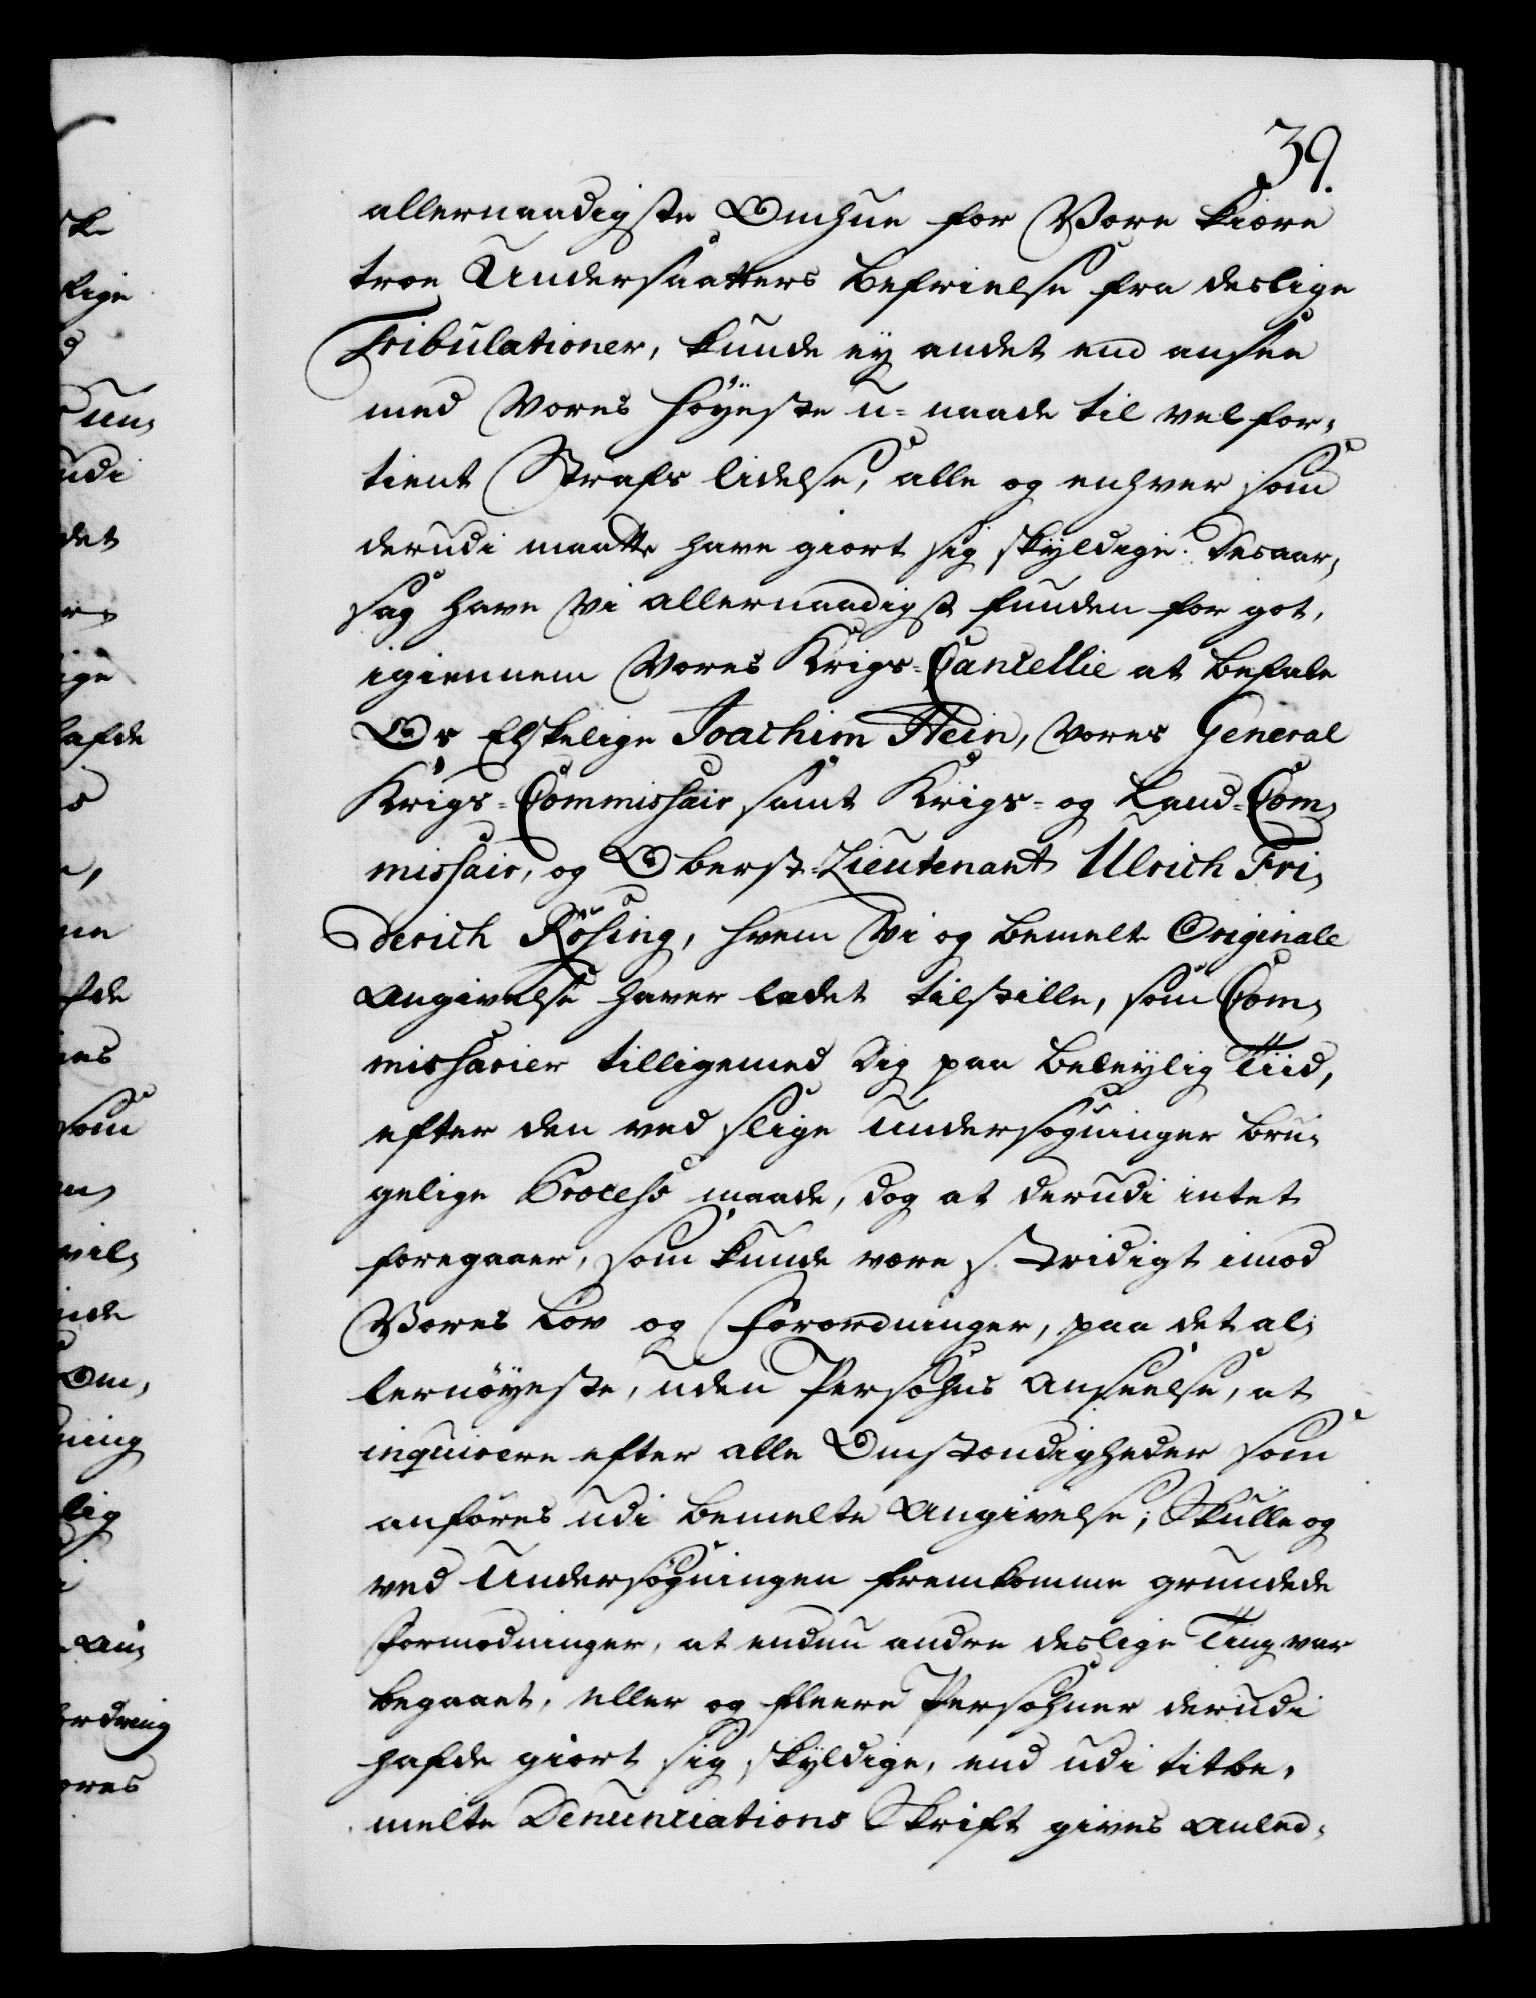 39.
allernaadigste Omhue for Vore kiære
troe Undersaatters befrielse fra deslige
Tribulationer, kunde ey andet end ansee
med Vores höyeste u-naade til vel for-
tient Strafs lidelse, alle og enhver som
derudi maatte have giort sig skyldige. Desaar-
sag have Vi allernaadigst funden for got,
igiennem Vores Krigs-Cancellie at befale
Os Elskelige Joachim Hein, Vores General
Krigs-Commissair, samt Krigs- og Land-Com-
missair, og Oberst-Lieutenant Ulrich Fri-
derich Rösing, hvem Vi og bemelte Originale
Angivelse haver ladet tilstille, som Com-
missarier tilligemed Dig paa beleylig Tiid,
efter den ved slige Undersøgninger bru-
gelige Process maade, dog at derudi intet
foregaaer, som kunde være stridigt imod
Vores Lov og Forordninger, paa det al-
lernöyeste, uden Persohns Anseelse, at
inqvirere efter alle Omstændigheder som
anföres udi bemelte Angivelse; Skulle og
ved Undersögningen fremkomme grundede
Formodninger, at endnu andre deslige Ting var
begaaet, eller og fleere Persohner derudi
hafde giort sig skyldige, end udi titbe-
melte Denunciations Skrift gives Anled-